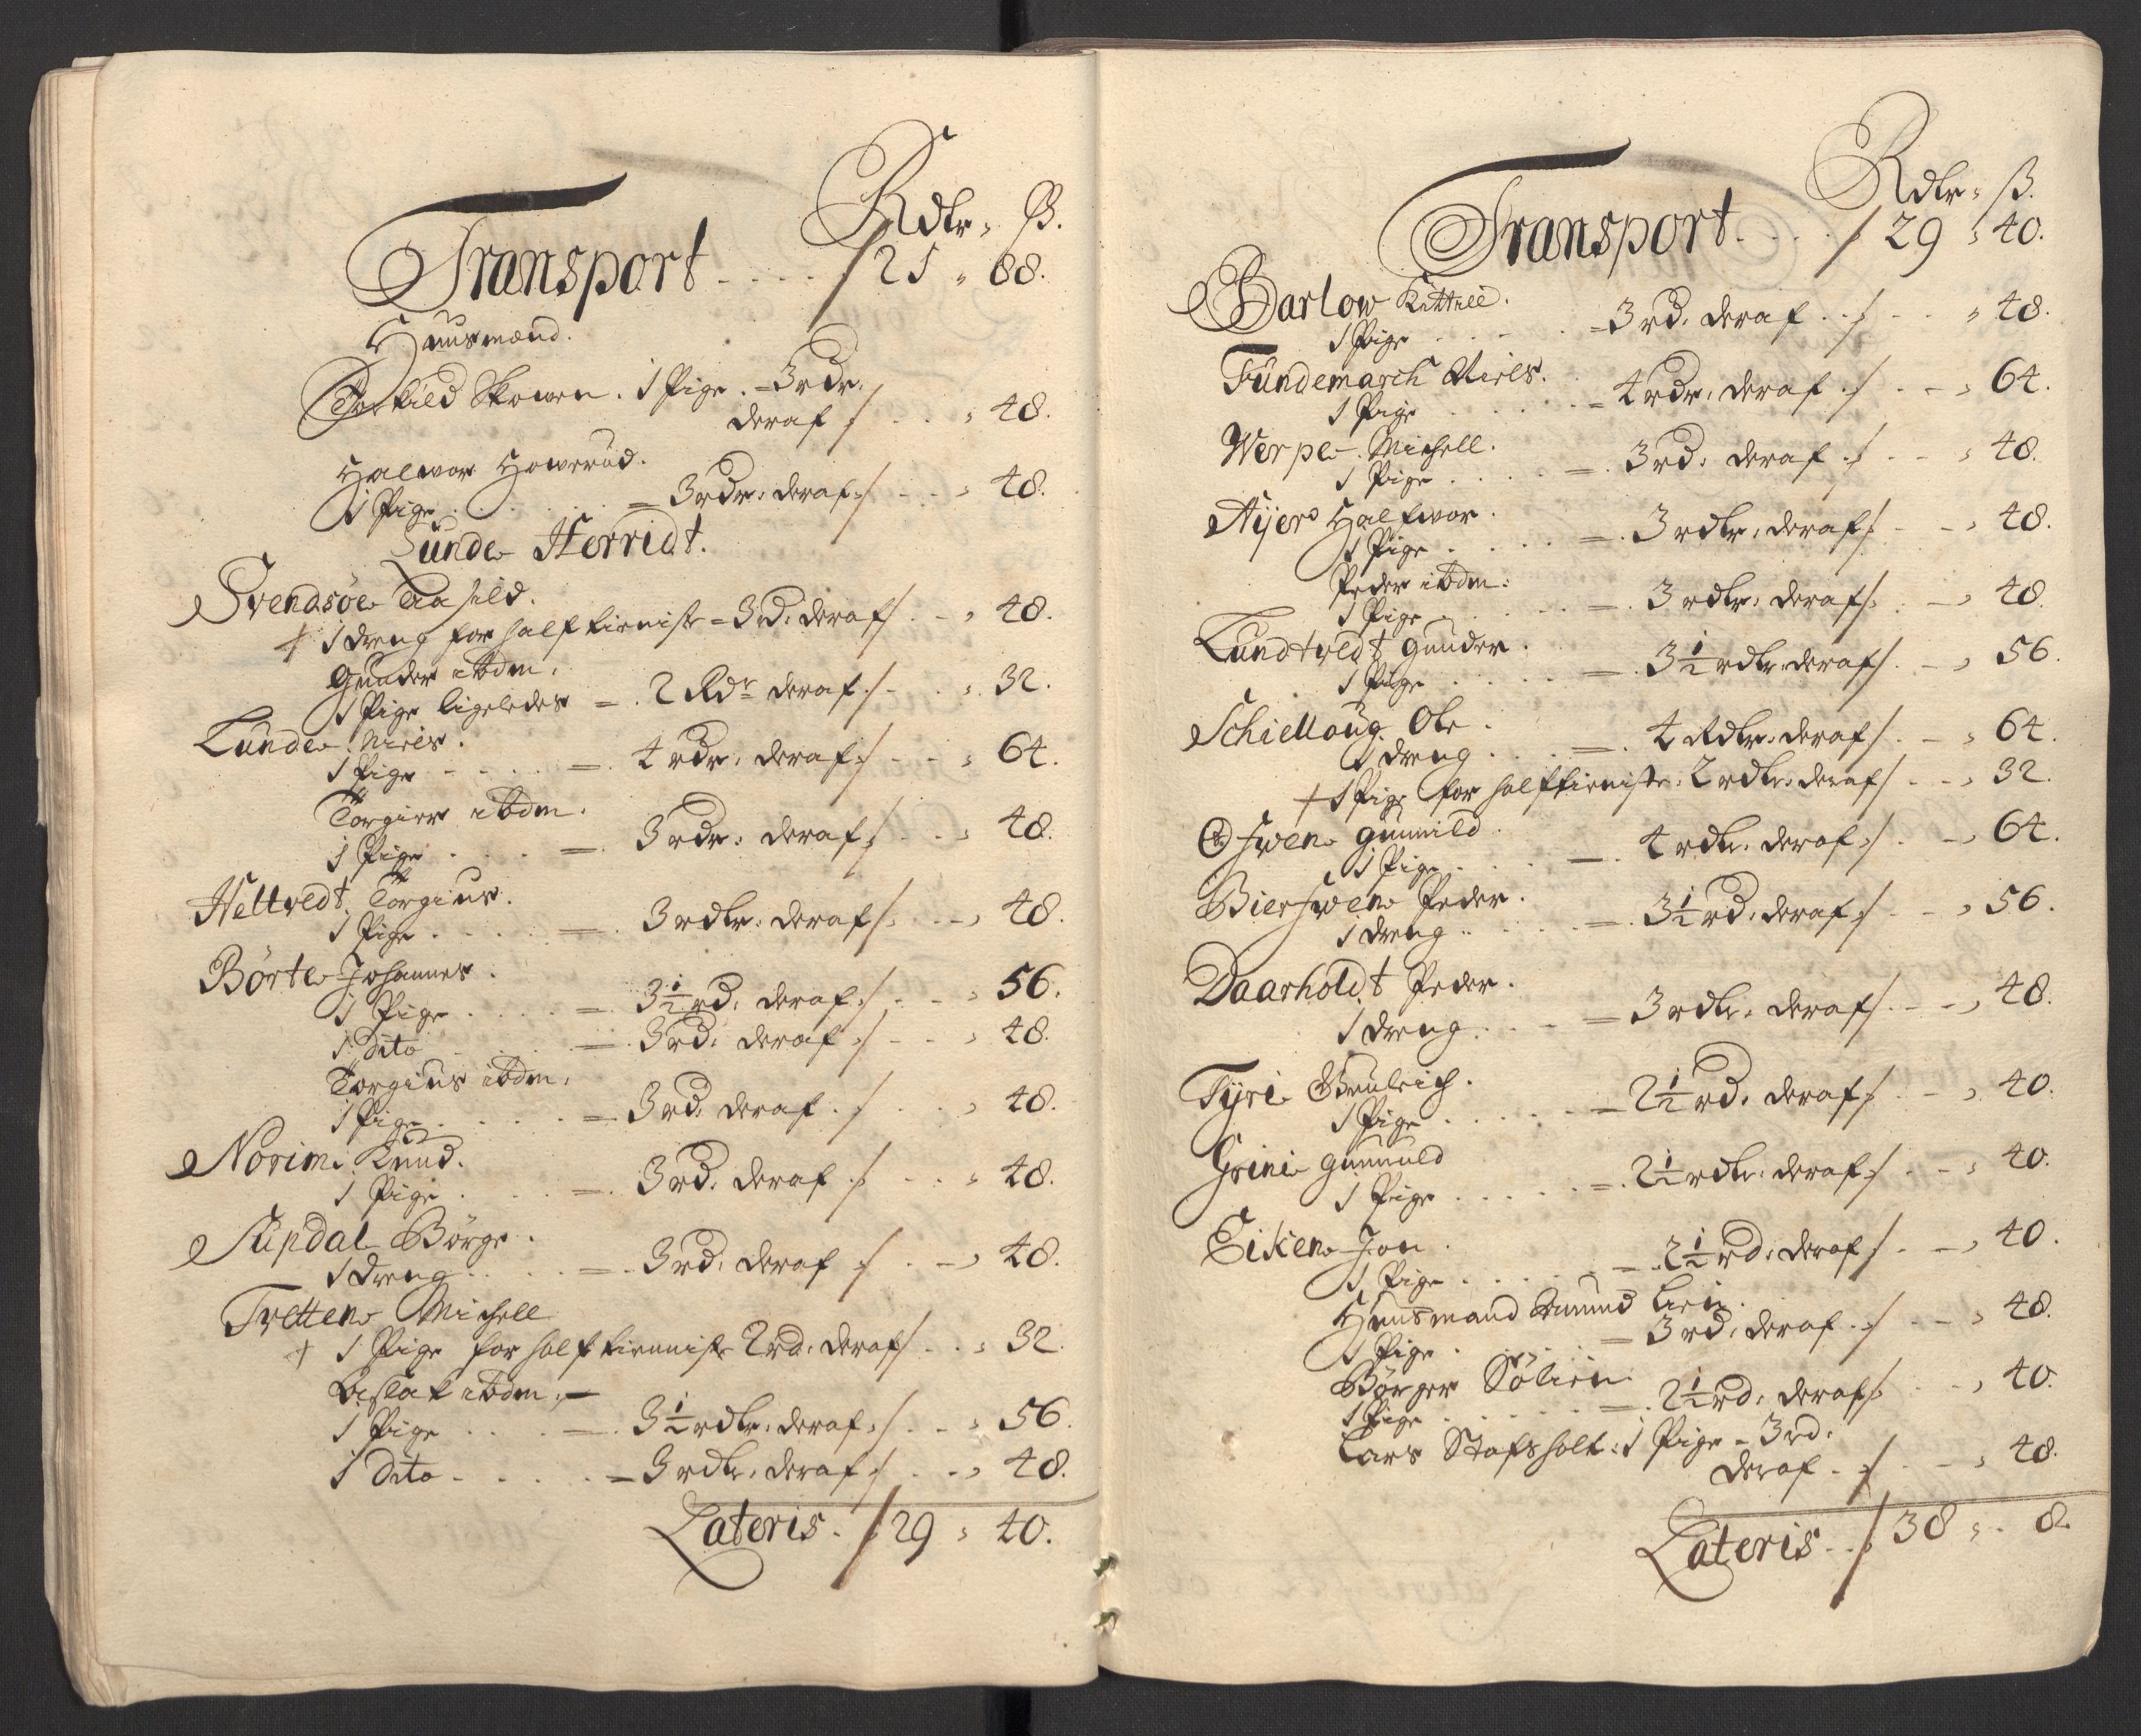 Rdlr. ß.
Transport . . . . 21 . 88.
Huusmænd.
Torkild Skowen. 1 Pige . = 3 rdr.
deraf . . 48.
Halwor Howerud.
1 Pige . . . . = 3 rdr. deraf . . 48.
Lunde Herridt.
Svendsøe Aasild.
+ 1 dreng for half tieniste = 3 rd. deraf . . 48.
Gunder ibdm.
1 Pige ligeledes = . 2 Rdr deraf . . 32.
Lunde Niels.
1 Pige . . . = . 4 rdr. deraf . . 64.
Torgier ibdm.
1 Pige . . . = . 3 rdr. deraf . . 48.
Heltvedt Torgius.
1 Pige . . . = . 3 rdlr. deraf . . 48.
Børte Johannes.
1 Pige . . . = . 3½ rd. deraf . . 56.
1 dito . . . = . 3 rd. deraf . . 48.
Torgius ibdm.
1 Pige . . . = . 3 rd. deraf . . 48.
Norim Knud.
1 Pige . . . = . 3 rd. deraf . . 48.
Supdal Børge.
1 dreng . . . = . 3 rd. deraf . . 48.
Tvetten Michell
+ 1 Pige for half tienniste 2 rd. deraf . . 32.
Aslak ibdm.
1 Pige . . . = . 3½ rdlr. deraf . . 56.
1 dito . . . = 3 rdlr. deraf . . 48.
Lateris . 29 . 40.
Rdlr. ß.
Transport . . . . 29 . 40.
Barlow Kittell.
1 Pige . . . = 3 rd. deraf . . 48.
Fundemarch Niels.
1 Pige . . . = 4 rdr. deraf . . 64.
Werpe Michell.
1 Pige . . . = . 3 rd. deraf . . 48.
Aÿers Halfwor.
1 Pige . . . = . 3 rdlr. deraf . . 48.
Peder ibdm.
1 Pige . . . = . 3 rdlr. deraf . . 48.
Lundtvedt Gunder.
1 Pige . . . = . 3½ rdlr. deraf . . 56.
Schiellaug Ole.
1 dreng . . . = . 4 Rdlr. deraf . . 64.
+ 1 Pige for half tieniste. 2 rdlr. deraf . . 32.
Øfwen Gunnild.
1 Pige . . . = . 4 rdlr. deraf . . 64.
Bierfwen Peder.
1 dreng . . . = . 3½ rd. deraf . . 56.
Daarholdt Peder.
1 dreng . . . = 3 rdlr. deraf . . 48.
Tÿri
1 Pige . . . = 2½ rd. deraf . . 40.
Grini Gunnuld
1 Pige . . . = . 2½ rdlr. deraf . . 40.
Eiken Jon.
1 Pige . . . = . 2½ rd. deraf . . 40.
Huusmand Amund Lien.
1 Pige . . . = 3 rd. deraf . . 48.
Børger Sølien.
1 Pige . . . = . 2½ rd. deraf . . 40.
Lars Stafsholt. 1 Pige = 3 rd.
deraf . . 48.
Lateris . . 38 . 8.